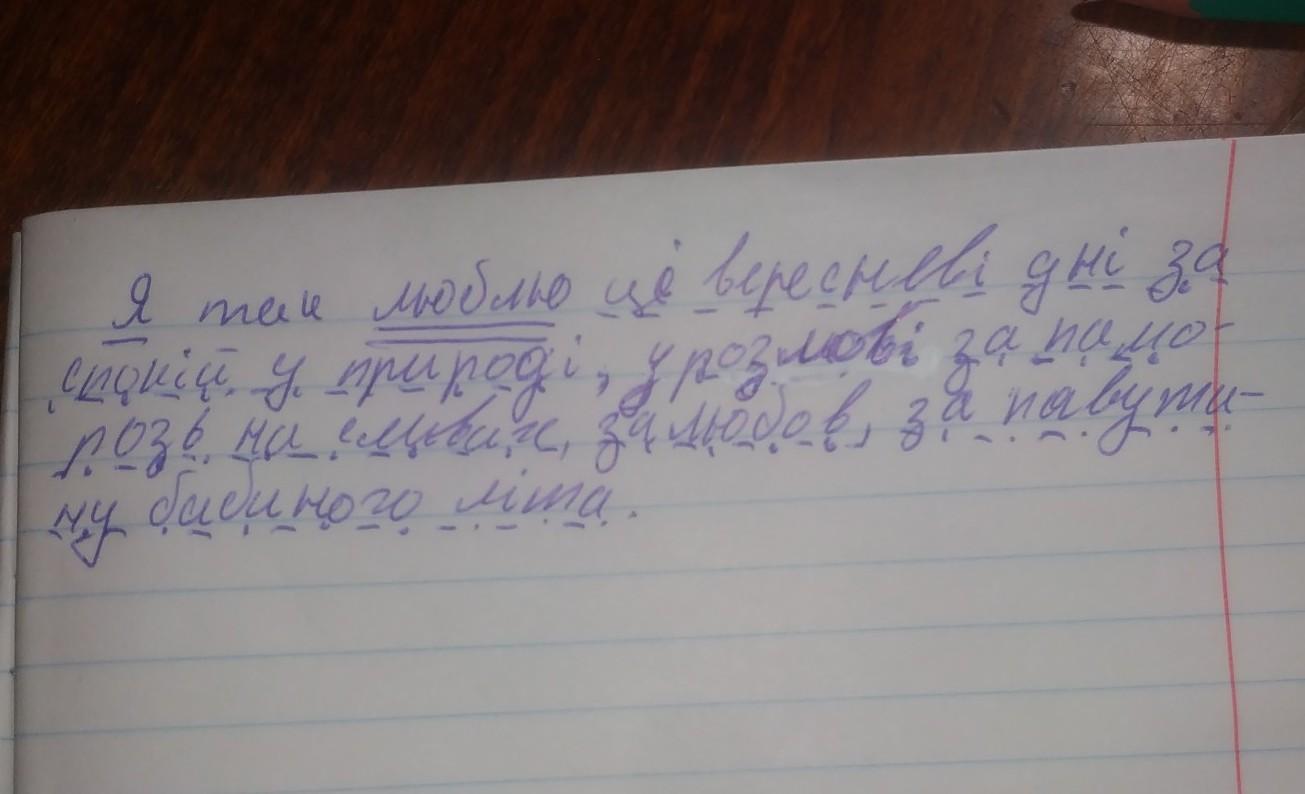 Я так люблю ці вересневі дні за
спокій у природі, у розмові за памо-
розь на сливах, за любов, за павути-
ну бабиного літа.